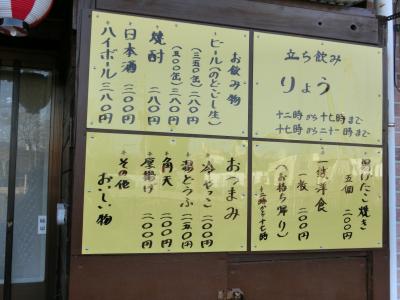 立ち飲み
りょう
十二時から十七時まで
十七時から二十一時まで
お飲み物
・ビール(のどごし生)
(三五〇缶)二八〇円
(五〇〇缶)三八〇円
・焼酎 二八〇円
・日本酒 三〇〇円
・ハイボール 三八〇円
・揚げたこ焼き
五個 二〇〇円
・一銭洋食
一枚 二〇〇円
(お持ち帰り)
十二時から十七時
おつまみ
・冷やっこ 二〇〇円
・湯どうふ 二五〇円
・角天 二〇〇円
・厚揚げ 二〇〇円
・その他
おいしい物